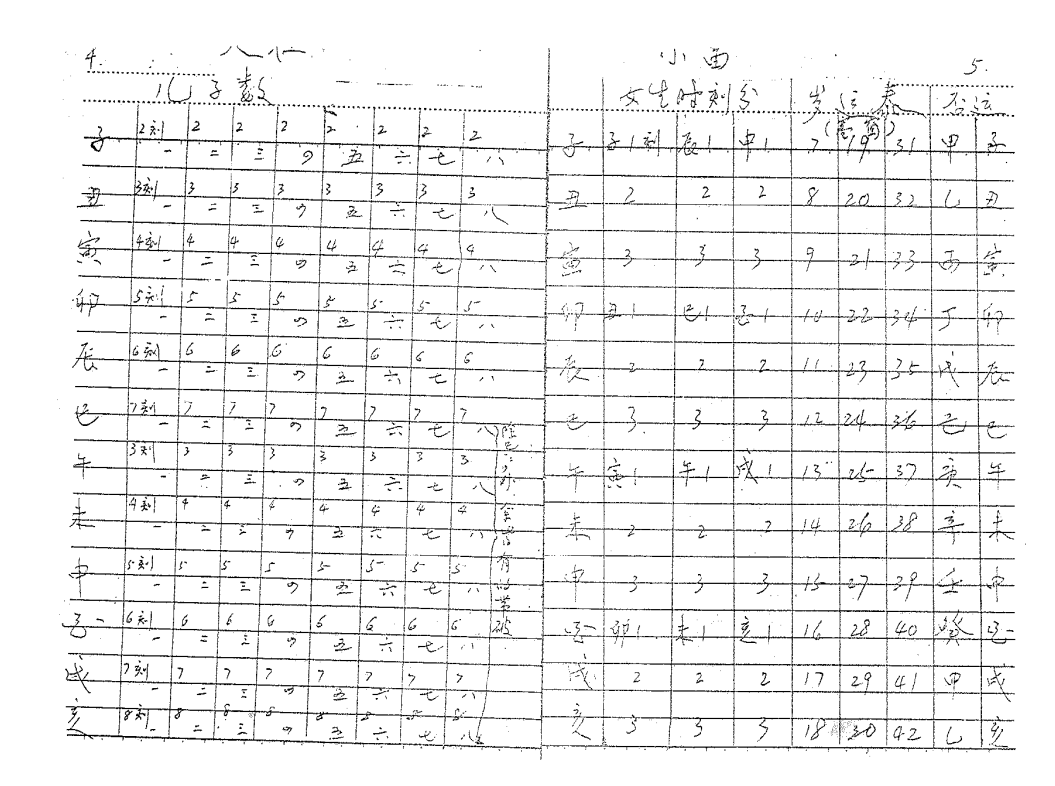 4.
儿子数
子 2刻 2 2 2 2 2 2 2
一 二 三 の 五 六 七 八
丑 3刻 3 3 3 3 3 3 3
一 二 三 の 五 六 七 八
寅 4刻 4 4 4 4 4 4 4
一 二 三 の 五 六 七 八
卯 5刻 5 5 5 5 5 5 5
一 二 三 の 五 六 七 八
辰 6刻 6 6 6 6 6 6 6
一 二 三 の 五 六 七 八
巳 7刻 7 7 7 7 7 7 7
一 二 三 の 五 六 七 八
午 3刻 3 3 3 3 3 3 3
一 二 三 の 五 六 七 八
未 4刻 4 4 4 4 4 4 4
一 二 三 の 五 六 七 八
申 5刻 5 5 5 5 5 5 5
一 二 三 の 五 六 七 八
6刻 6 6 6 6 6 6 6
一 二 三 の 五 六 七 八
戌 7刻 7 7 7 7 7 7 7
一 二 三 の 五 六 七 八
亥 8刻 8 8 8 8 8 5 8
一 二 三 の 五 六 七 八
小西
5.
女生时刻分
子 子1刻 辰1 申1 7 19 31 甲 子
丑 2 2 2 8 20 32 乙 丑
寅 3 3 3 9 21 33 丙 寅
卯 丑1 巳1 1 10 22 34 丁 卯
辰 2 2 2 11 23 35 戊 辰
巳 3 3 3 12 24 36 己 巳
午 寅1 午1 戌1 13 25 37 庚 午
未 2 2 2 14 26 38 辛 未
申 3 3 3 15 27 39 壬 申
卯1 未1 亥1 16 28 40 癸
戌 2 2 2 17 29 41 甲 戌
亥 3 3 3 18 30 42 乙 亥